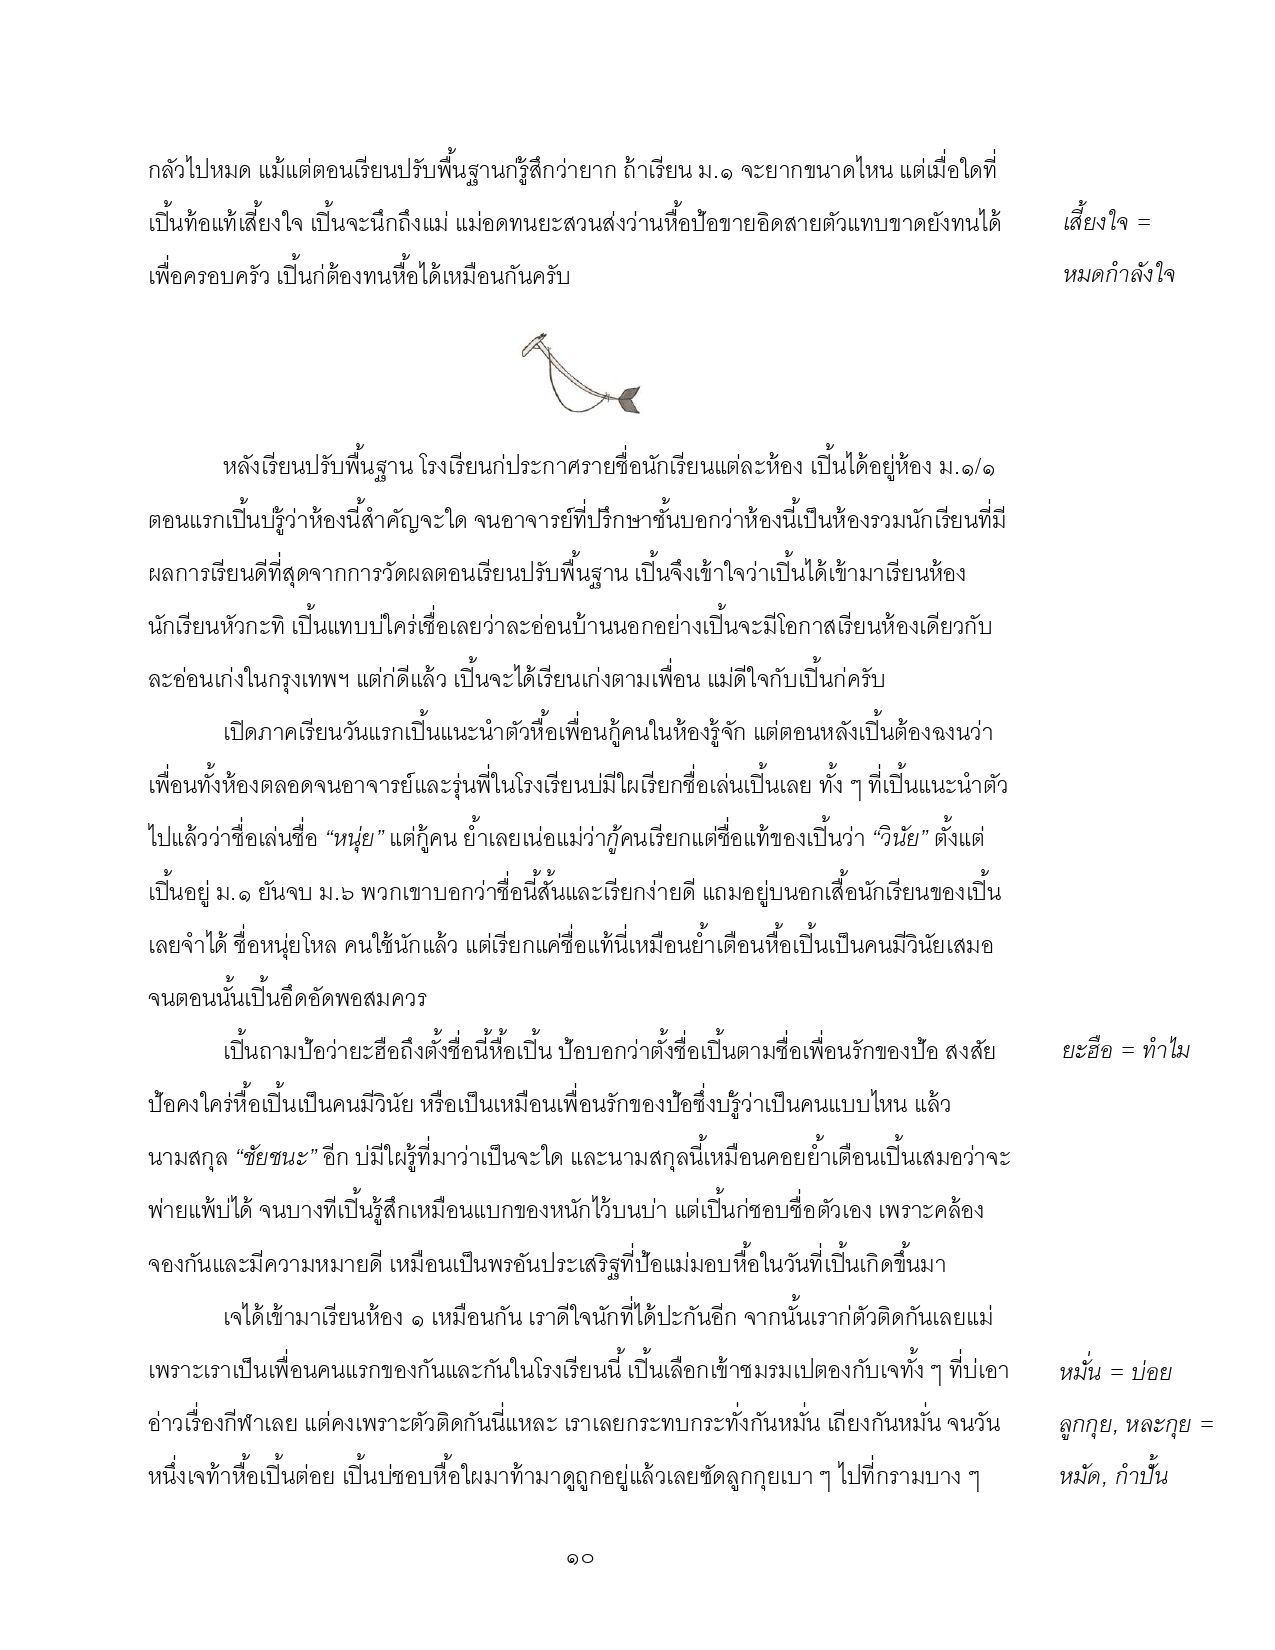 กลัวไปหมด แม้แต่ตอนเรียนปรับพื้นฐานก่รู้สึกว่ายาก ถ้าเรียน ม.๑ จะยากขนาดไหน แต่เมื่อใดที่
เปิ้นท้อแท้เสี้ยงใจ เปิ้นจะนึกถึงแม่ แม่อดทนยะสวนส่งว่านหื้อป้อขายอิดสายตัวแทบขาดยังทนได้
เสี้ยงใจ =
เพื่อครอบครัว เปิ้นก่ต้องทนหื้อได้เหมือนกันครับ
หมดกำลังใจ
หลังเรียนปรับพื้นฐาน โรงเรียนก่ประกาศรายชื่อนักเรียนแต่ละห้อง เปิ้นได้อยู่ห้อง ม.๑/๑
ตอนแรกเปิ้นบ่รู้ว่าห้องนี้สำคัญจะใด จนอาจารย์ที่ปรึกษาชั้นบอกว่าห้องนี้เป็นห้องรวมนักเรียนที่มี
ผลการเรียนดีที่สุดจากการวัดผลตอนเรียนปรับพื้นฐาน เปิ้นจึงเข้าใจว่าเปิ้นได้เข้ามาเรียนห้อง
นักเรียนหัวกะทิ เปิ้นแทบบ่ใคร่เชื่อเลยว่าละอ่อนบ้านนอกอย่างเปิ้นจะมีโอกาสเรียนห้องเดียวกับ
ละอ่อนเก่งในกรุงเทพฯ แต่ก่ดีแล้ว เปิ้นจะได้เรียนเก่งตามเพื่อน แม่ดีใจกับเปิ้นก่ครับ
เปิดภาคเรียนวันแรกเปิ้นแนะนำตัวหื้อเพื่อนกู้คนในห้องรู้จัก แต่ตอนหลังเปิ้นต้องฉงนว่า
เพื่อนทั้งห้องตลอดจนอาจารย์และรุ่นพี่ในโรงเรียนบ่มีใผเรียกชื่อเล่นเปิ้นเลย ทั้ง ๆ ที่เปิ้นแนะนำตัว
ไปแล้วว่าชื่อเล่นชื่อ “หนุ่ย” แต่กู้คน ย้ำเลยเน่อแม่ว่ากู้คนเรียกแต่ชื่อแท้ของเปิ้นว่า “วินัย” ตั้งแต่
เปิ้นอยู่ ม.๑ ยันจบ ม.๖ พวกเขาบอกว่าชื่อนี้สั้นและเรียกง่ายดี แถมอยู่บนอกเสื้อนักเรียนของเปิ้น
เลยจำได้ ชื่อหนุ่ยโหล คนใช้นักแล้ว แต่เรียกแค่ชื่อแท้นี่เหมือนย้ำเตือนหื้อเปิ้นเป็นคนมีวินัยเสมอ
จนตอนนั้นเปิ้นอึดอัดพอสมควร
เปิ้นถามป้อว่ายะฮือถึงตั้งชื่อนี้หื้อเปิ้น ป้อบอกว่าตั้งชื่อเปิ้นตามชื่อเพื่อนรักของป้อ สงสัย
ยะฮือ = ทำไม
ป้อคงใคร่หื้อเปิ้นเป็นคนมีวินัย หรือเป็นเหมือนเพื่อนรักของป้อซึ่งบ่รู้ว่าเป็นคนแบบไหน แล้ว
นามสกุล “ชัยชนะ” อีก บ่มีใผรู้ที่มาว่าเป็นจะใด และนามสกุลนี้เหมือนคอยย้ำเตือนเปิ้นเสมอว่าจะ
พ่ายแพ้บ่ได้ จนบางทีเปิ้นรู้สึกเหมือนแบกของหนักไว้บนบ่า แต่เปิ้นก่ชอบชื่อตัวเอง เพราะคล้อง
จองกันและมีความหมายดี เหมือนเป็นพรอันประเสริฐที่ป้อแม่มอบหื้อในวันที่เปิ้นเกิดขึ้นมา
เจได้เข้ามาเรียนห้อง ๑ เหมือนกัน เราดีใจนักที่ได้ปะกันอีก จากนั้นเราก่ตัวติดกันเลยแม่
เพราะเราเป็นเพื่อนคนแรกของกันและกันในโรงเรียนนี้ เปิ้นเลือกเข้าชมรมเปตองกับเจทั้ง ๆ ที่บ่เอา
หมั่น = บ่อย
อ่าวเรื่องกีฬาเลย แต่คงเพราะตัวติดกันนี่แหละ เราเลยกระทบกระทั่งกันหมั่น เถียงกันหมั่น จนวัน
ลูกกุย, หละกุย =
หนึ่งเจท้าหื้อเปิ้นต่อย เปิ้นบ่ชอบหื้อใผมาท้ามาดูถูกอยู่แล้วเลยซัดลูกกุยเบา ๆ ไปที่กรามบาง ๆ
หมัด, กำปั้น
๑๐